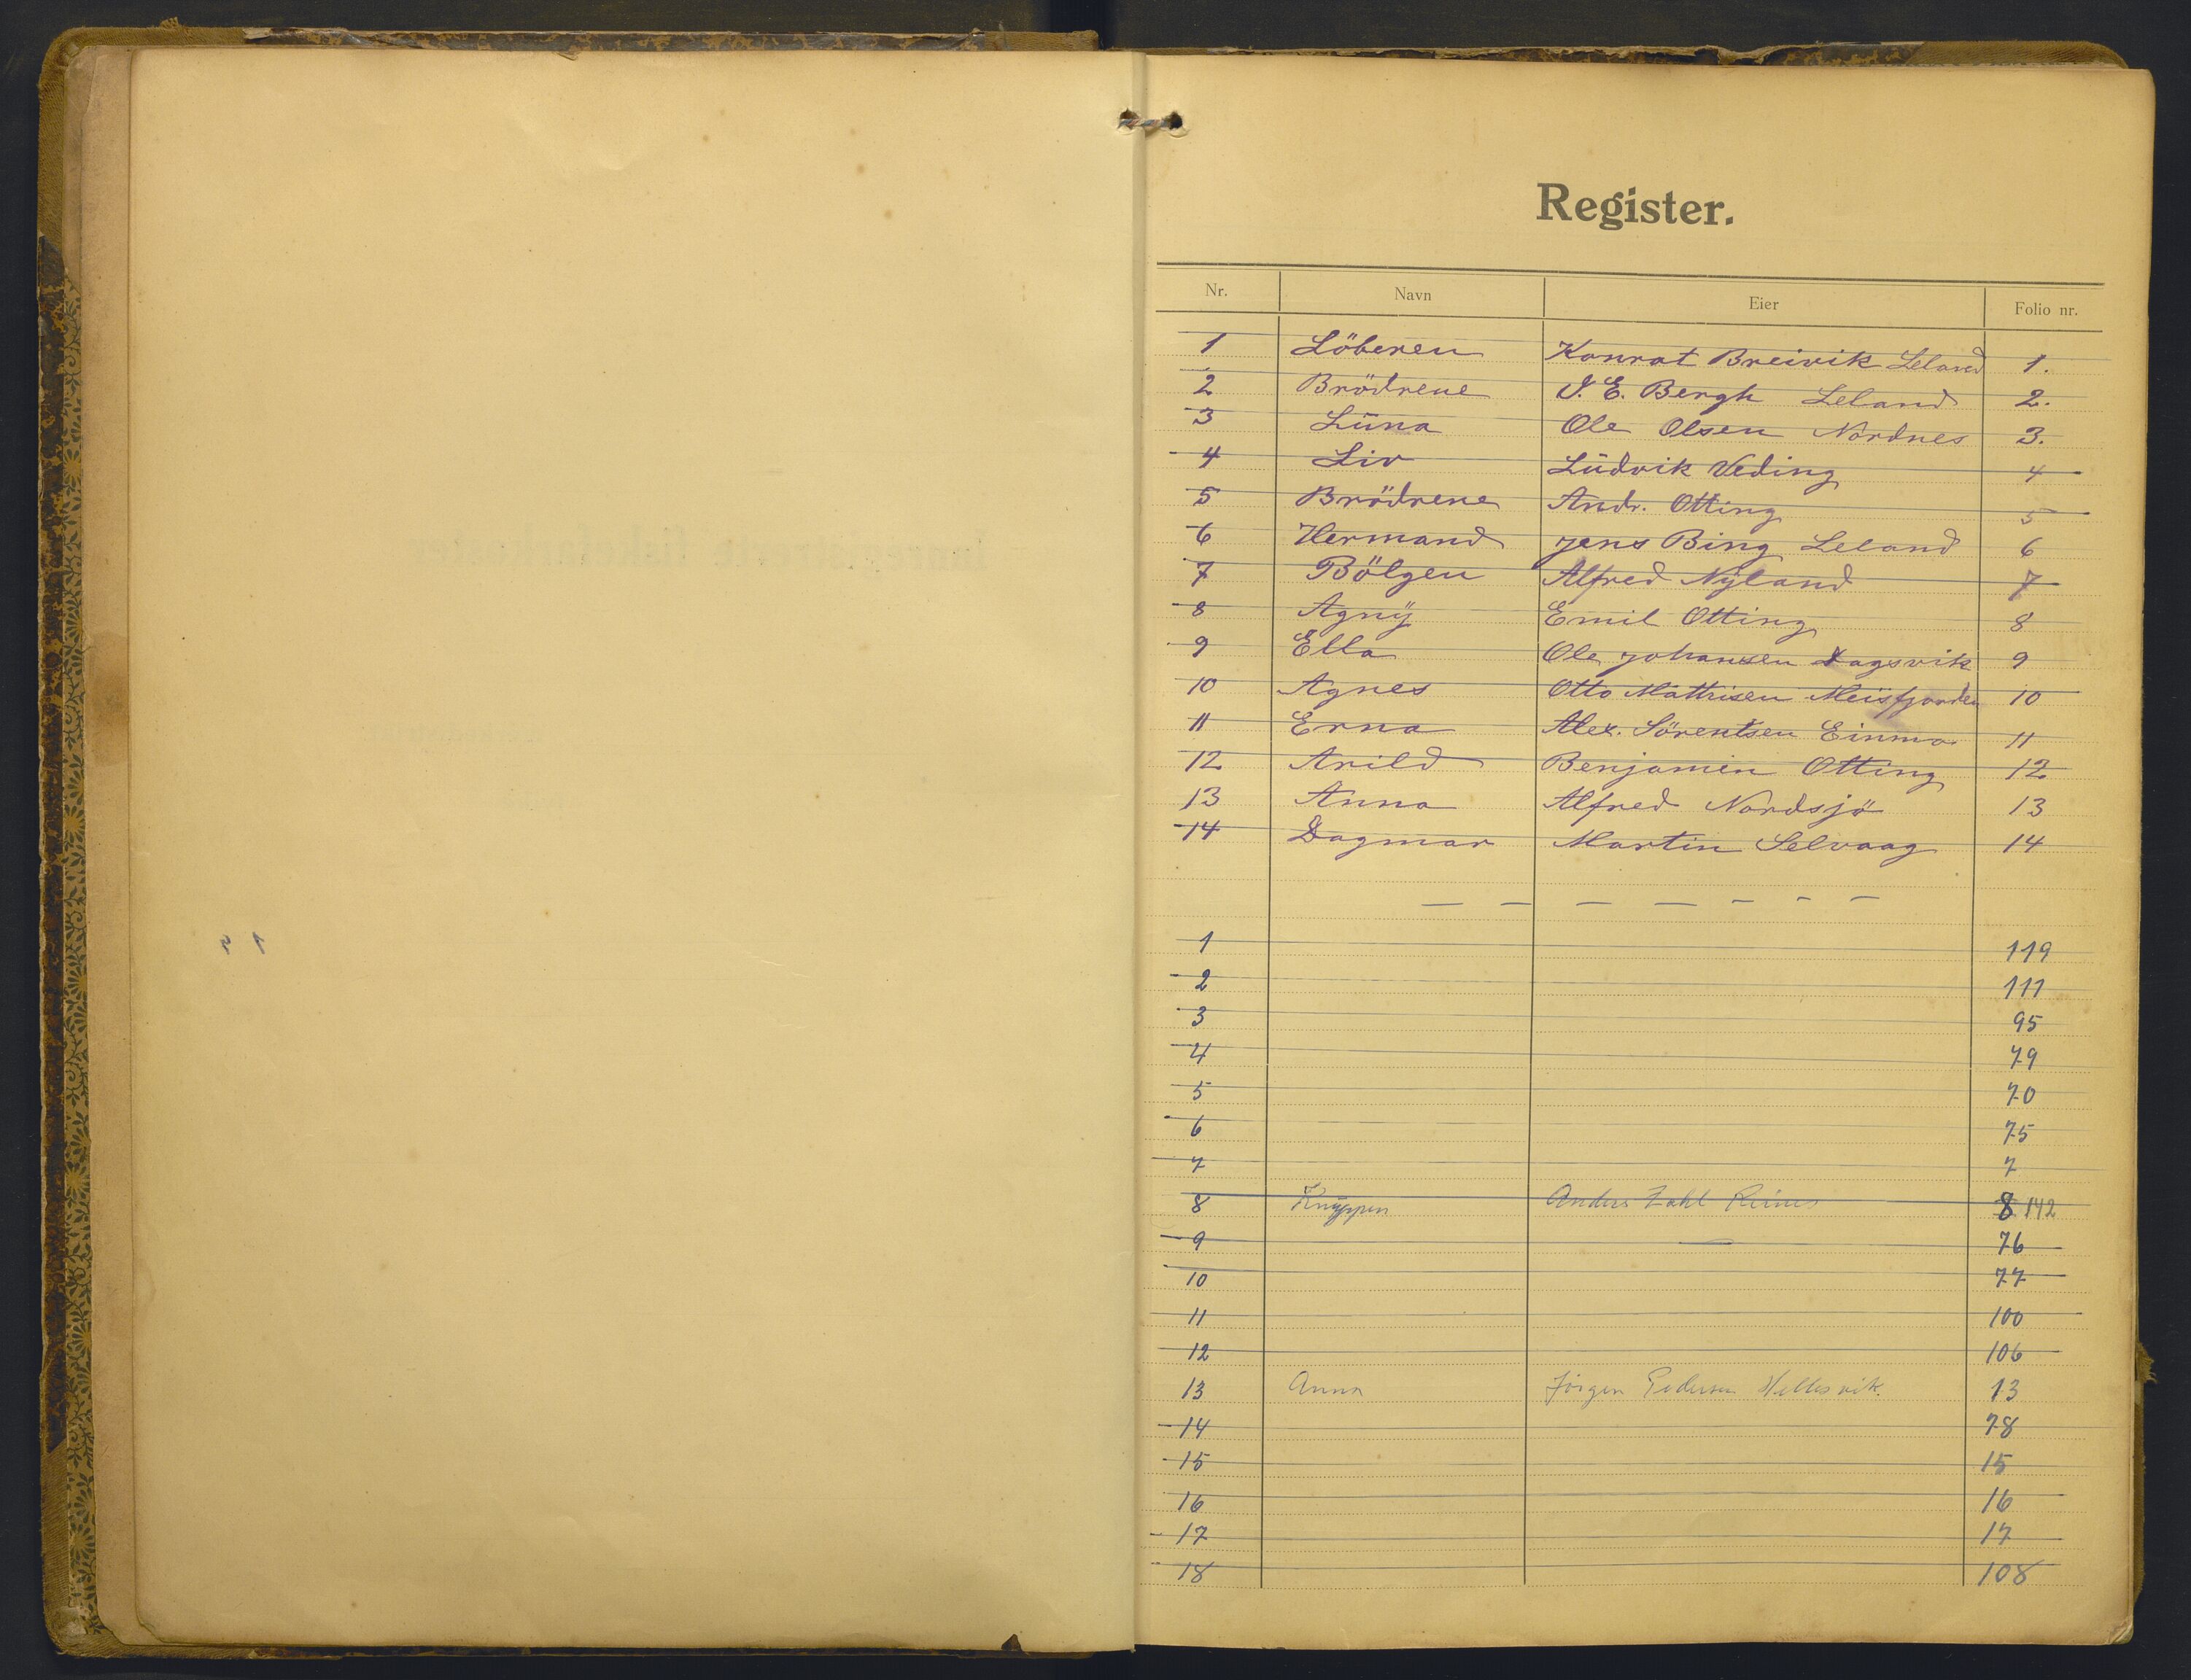 Register.
Nr. Navn Eier Folio nr.
1 Löberen Konrat Breivik Leland 1.
2 Brödrene J. E. Bergh Leland 2.
3 Lüna Ole Olsen Nordnes 3.
4 Liv Lüdvik Veding 4
5 Brödrene Andr. Otting 5
6 Hermand Jens Bing Leland 6
7 Bölgen Alfred Nÿland 7
8 Agnÿ Emil Otting 8
9 Ella Ole Johansen Dagsvik 9
10 Agnes Otto Mathisen Meisfjorden 10
11 Erna Alex. Sörentsen Einmo 11
12 Arild Benjamin Otting 12
13 Anna Alfred Nordsjö 13
14 Dagmar Martin Selvaag 14
— — — — – - –
1 119
2 111
3 95
4 79
5 70
6 75
7 7
8 Anders Zahl 8 142
9 — 76
10 77
11 100
12 106
13 Anna Jörgen Pedersen Hellesvik. 13
14 78
15 15
16 16
17 17
18 108